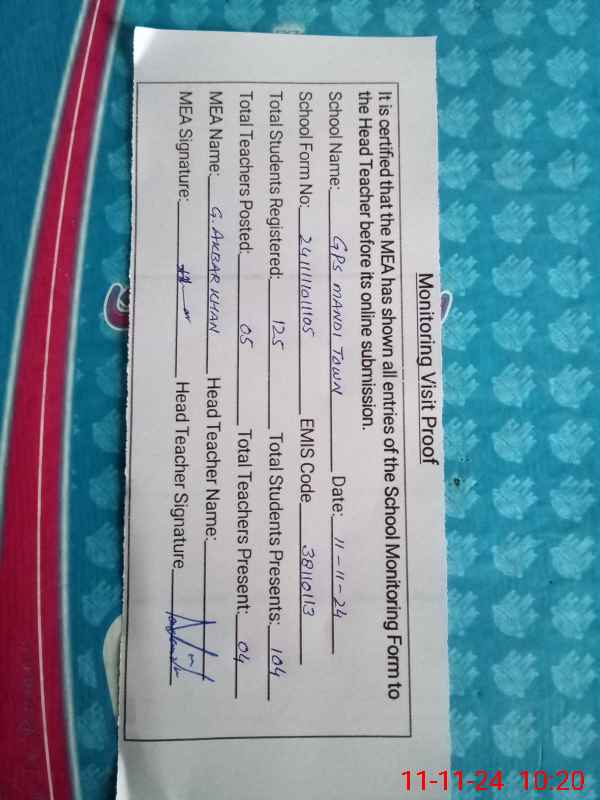 Monitoring Visit Proof
It is certified that the MEA has shown all entries of the School Monitoring Form to
the Head Teacher before its online submission.
School Name: GPS MANDI TOWN Date: 11-11-24
School Form No: 241111101105 EMIS Code 38110113
Total Students Registered: 125 Total Students Presents: 104
Total Teachers Posted: 05 Total Teachers Present: 04
MEA Name: G. AKBAR KHAN Head Teacher Name:
MEA Signature: Head Teacher Signature
11-11-24 10:20